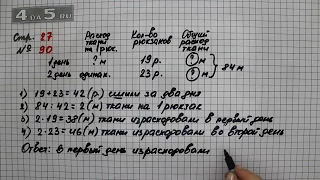 4 DA 5 .RU
Стр. 27
№ 90
Расход ткани на 1 рюк.
Кол-во рюкзаков
Общий расход ткани
1 день ? м 19 р. ? м
2 день одинак. 23 р. ? м
84 м
1) 19+23=42 (р.) сшили за два дня
2) 84:42=2 (м) ткани на 1 рюкзак
3) 2·19=38(м) ткани израсходовали в первый день
4) 2·23=46(м) ткани израсходовали во второй день
Ответ: в первый день израсходовали